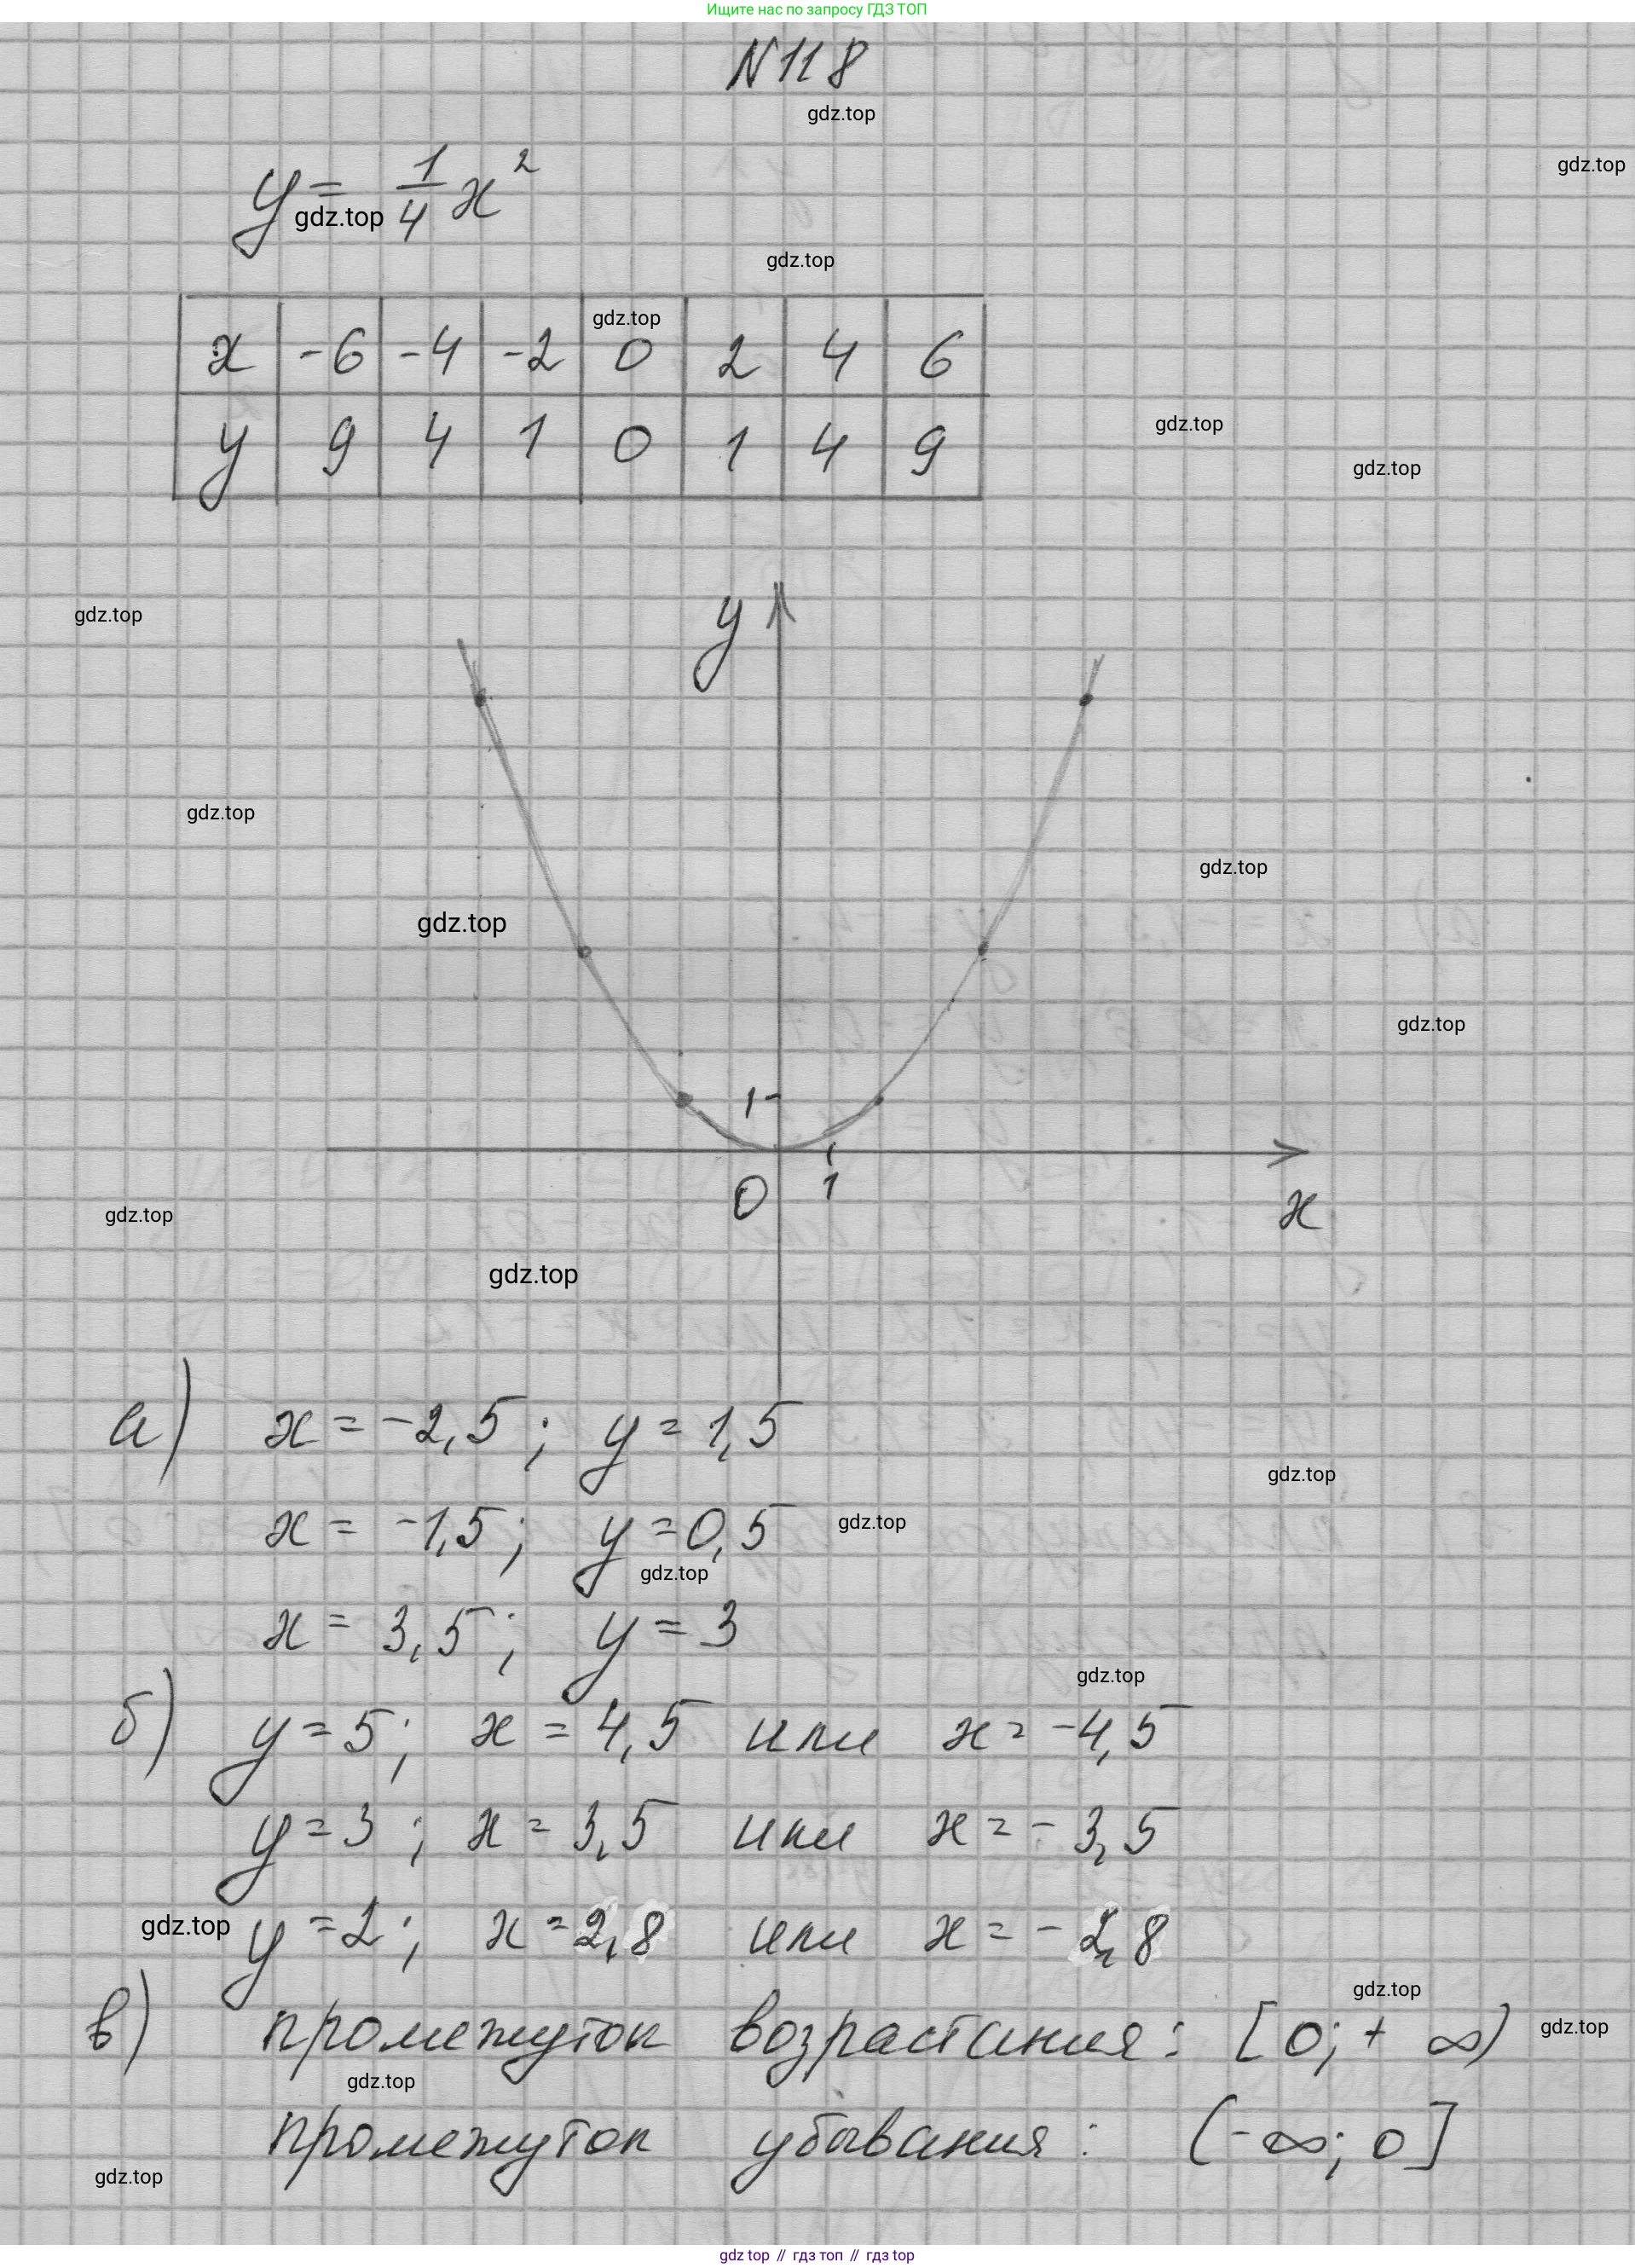 Ищите нас по запросу ГДЗ ТОП
N118
gdz.top
gdz.top
y = 1/4 x²
gdz.top
gdz.top
gdz.top
x -6 -4 -2 0 2 4 6
y 9 4 1 0 1 4 9
gdz.top
gdz.top
gdz.top
y
gdz.top
gdz.top
gdz.top
gdz.top
1
0 1 x
gdz.top
gdz.top
а) x = -2,5; y = 1,5
gdz.top
x = -1,5; y = 0,5
gdz.top
gdz.top
x = 3,5; y = 3
gdz.top
б) y = 5; x = 4,5 или x = -4,5
y = 3; x = 3,5 или x = -3,5
gdz.top
y = 2; x = 2,8 или x = -2,8
gdz.top
в) промежуток возрастания: [0; +∞)
gdz.top
gdz.top
промежуток убывания: (-∞; 0]
gdz.top
gdz top // гдз топ // гдз top